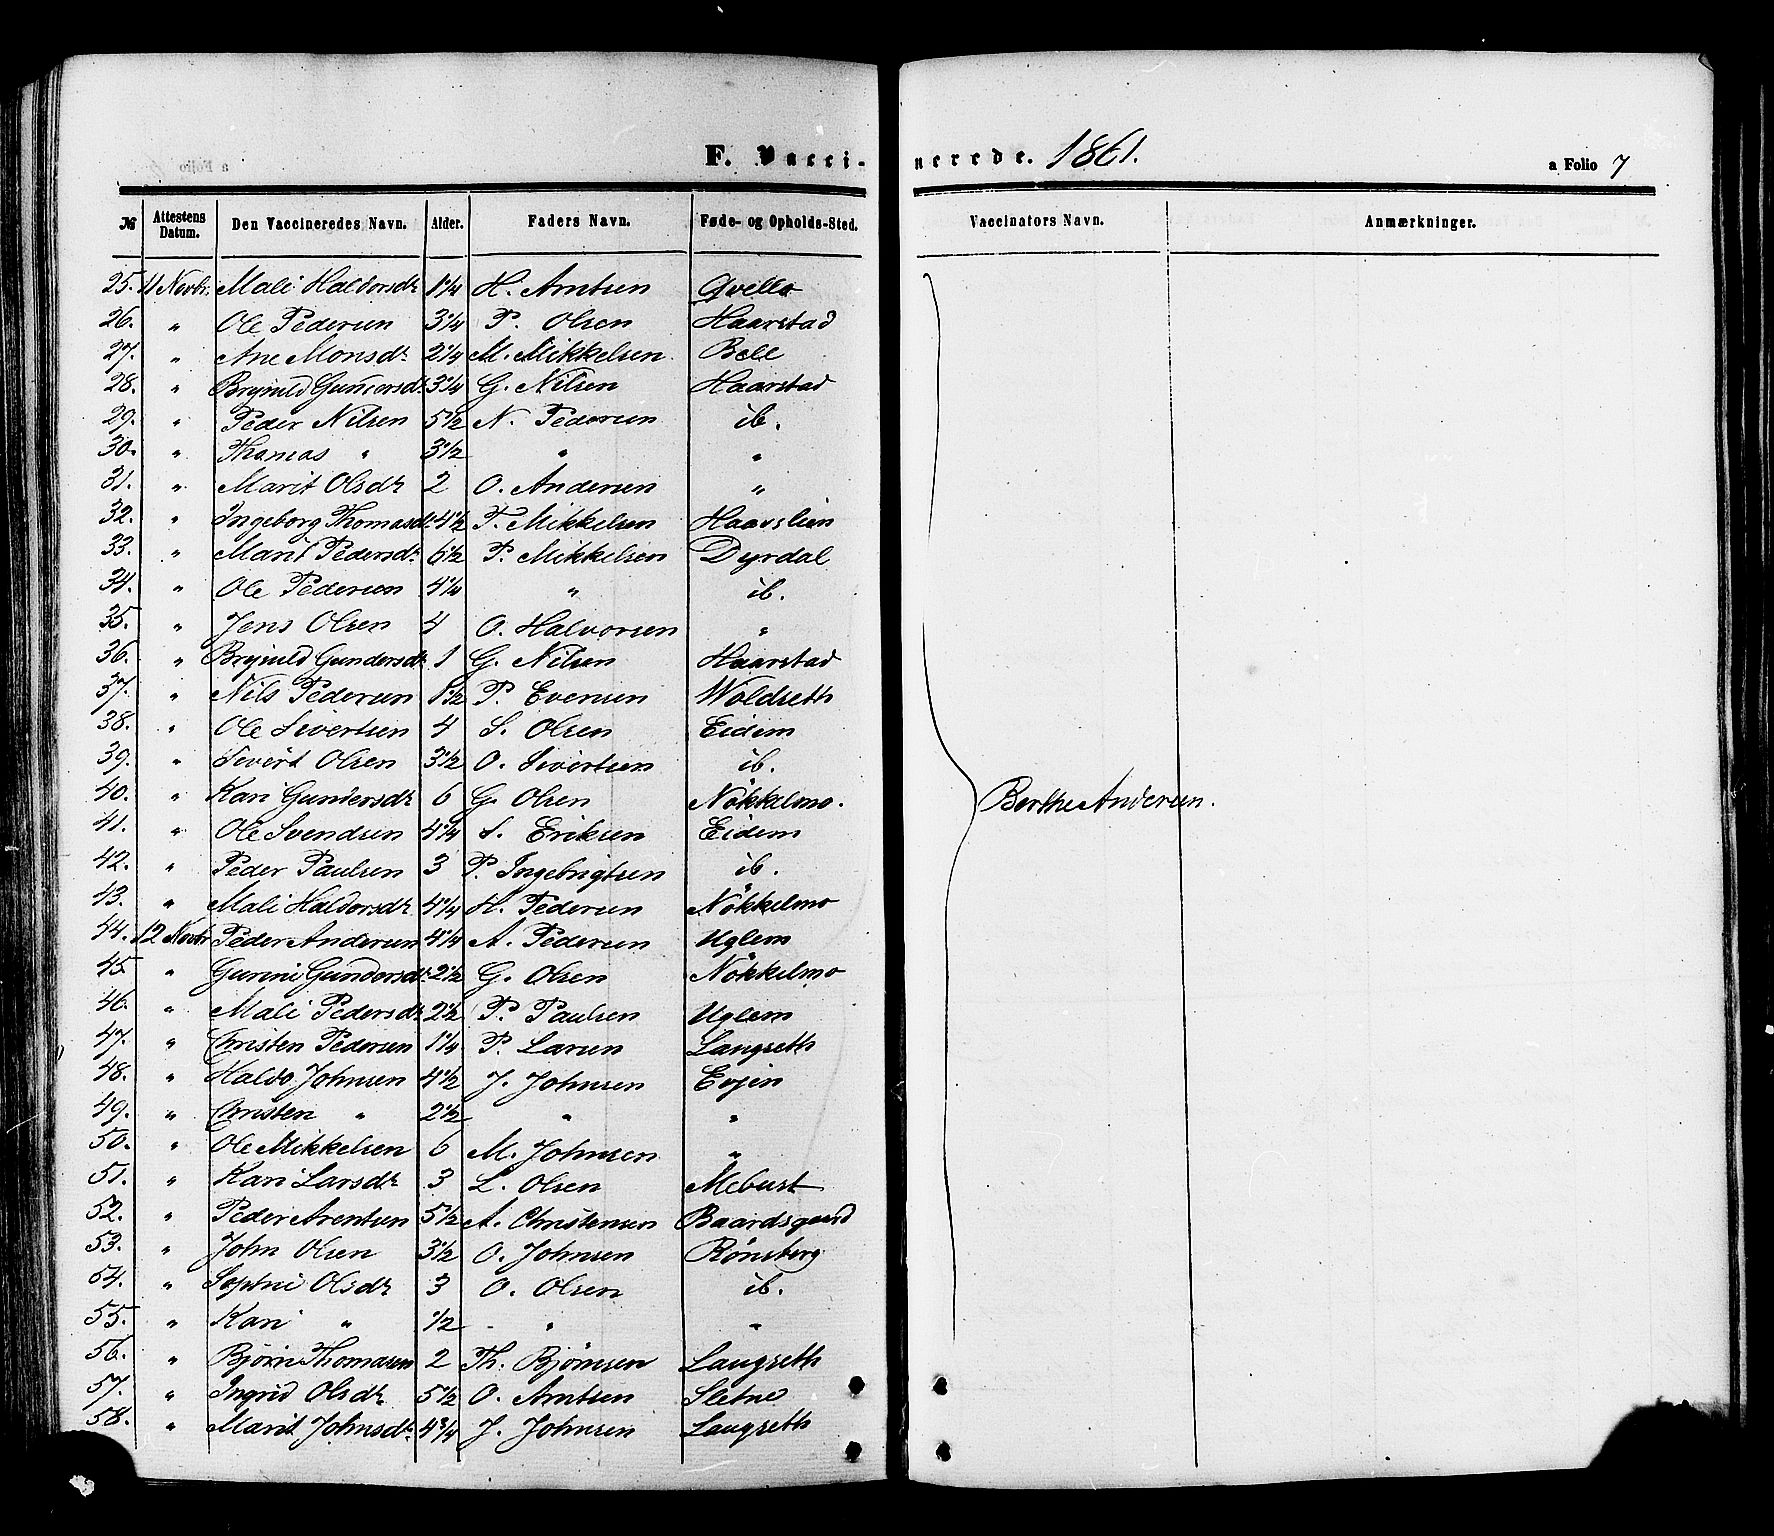 F. Vaccinerede. 1861. a Folio 7
№ Attestens Datum. Den Vaccineredes Navn. Alder. Faders Navn. Føde- og Opholds-Sted. Vaccinators Navn. Anmærkninger.
25. 11 Novbr. Mali Haldorsdr 1 1/4 H. Arntsen Qvello
26. " Ole Pedersen 3 1/4 P. Olsen Haarstad
27. " Ane Monsdr 2 1/4 M. Mikkelsen Bell
28. " Brynild Gundersdr 3 1/4 G. Nilsen Haarstad
29. " Peder Nilsen 5 1/2 N. Pedersen ib.
30. " Thomas " 3 1/2 " "
31. " Marit Olsdr 2 O. Andersen "
32. " Ingeborg Thomasdr 4 1/2 T. Mikkelsen Haarslien
33. " Marit Pedersdr 6 1/2 P. Mikkelsen Dyrdal
34. " Ole Pedersen 4 1/4 " ib.
35. " Jens Olsen 4 O. Halvorsen "
36. " Brynild Gundersdr 1 G. Nilsen Haarstad
37. " Nils Pedersen 1 1/2 P. Evensen Woldseth
38. " Ole Sivertsen 4 S. Olsen Eidem
39. " Sivert Olsen 3 1/2 O. Sivertsen ib.
40. " Kari Gundersdr 6 G. Olsen Nökkelmo. Berthe Andersen.
41. " Ole Svendsen 4 1/4 S. Eriksen Eidem
42. " Peder Paulsen 3 P. Ingebrigtsen ib.
43. " Mali Haldorsdr 4 1/4 H. Pedersen Nökkelmo
44. 12 Novbr Peder Andersen 4 1/4 A. Pedersen Uglem
45. " Gurini Gundersdr 2 1/2 G. Olsen Nökkelmo
46. " Mali Pedersdr 2 1/2 P. Paulsen Uglem
47. " Christen Pedersen 1 1/4 P. Larsen Langseth
48. " Haldo Johnsen 4 1/2 J. Johnsen Evjen
49. " Christen " 2 1/2 " "
50. " Ole Mikkelsen 6 M. Johnsen "
51. " Kari Larsdr 3 L. Olsen Mebust
52. " Peder Arentsen 5 1/2 A. Christensen Baardsgaard
53. " John Olsen 3 1/2 O. Johnsen Rønsberg
54. " Sophie Olsdr 3 O. Olsen ib.
55. " Kari " 1/2 " "
56. " Bjørn Thomasen 2 Th. Bjørnsen Langseth
57. " Ingrid Olsdr 5 1/2 O. Arntsen Sletne
58. " Marit Johnsdr. 4 3/4 J. Johnsen Langseth